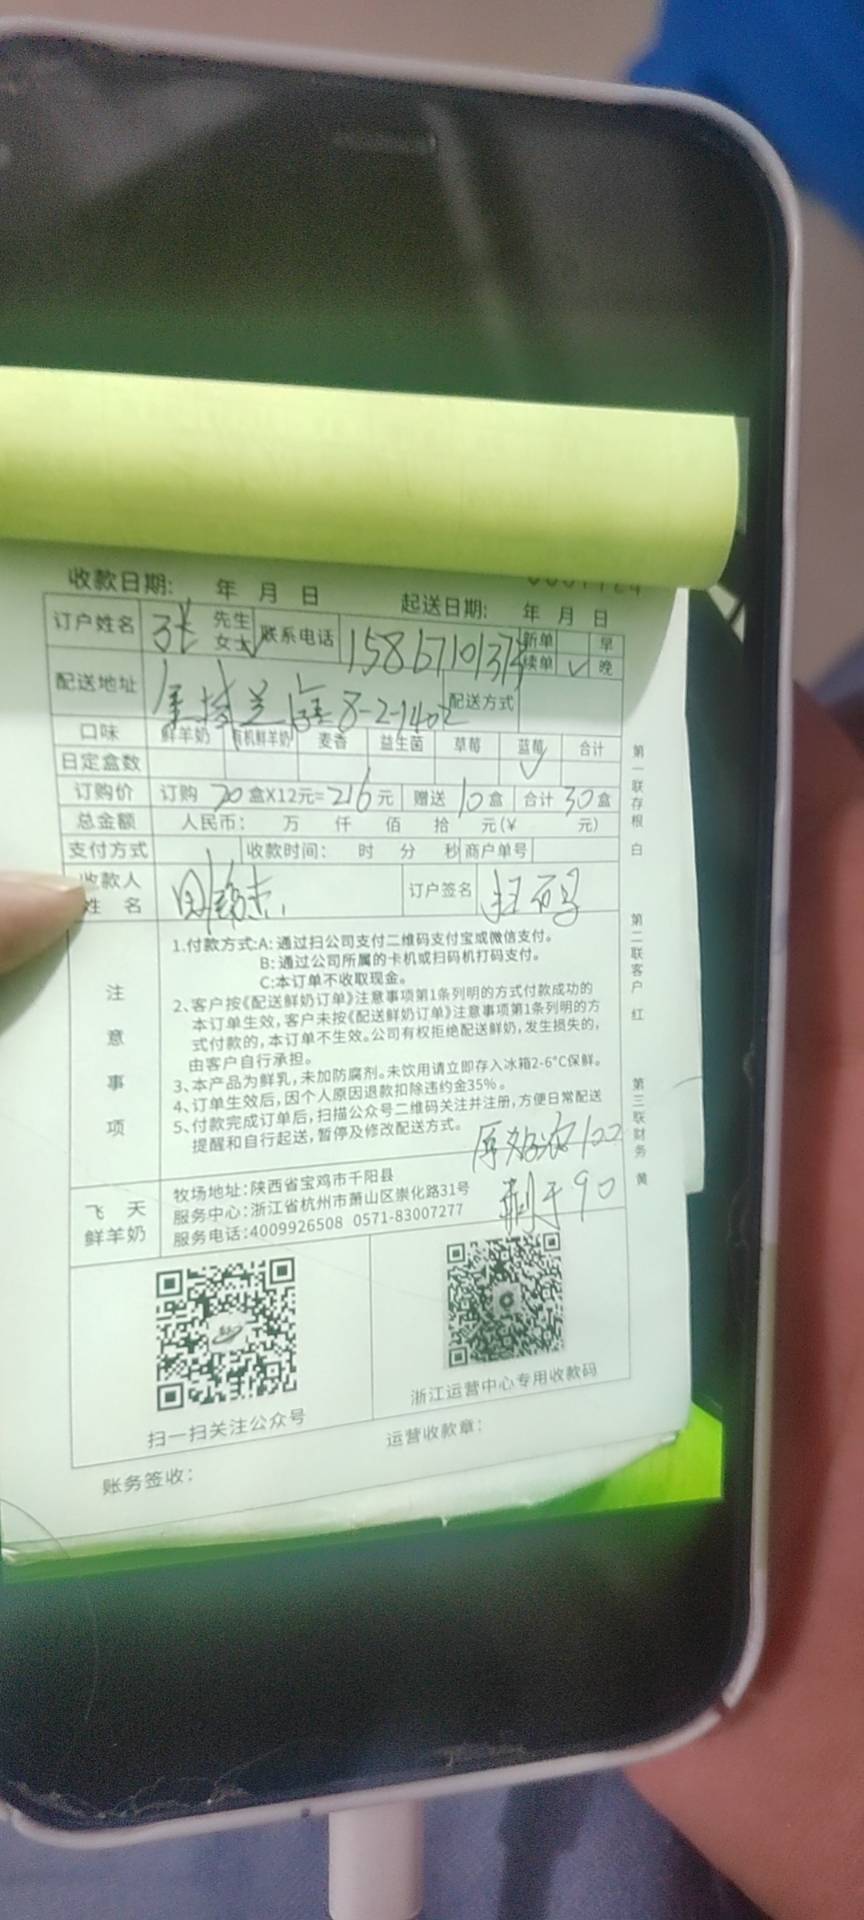 收款日期: 年 月 日 起送日期: 年 月 日
订户姓名 张 先生 女士 √ 联系电话 新单 早
续单 √ 晚
配送地址 8-2-1402 配送方式
口味 鲜羊奶 有机鲜羊奶 麦香 益生菌 草莓 蓝莓 合计
日定盒数 √
订购价 订购 20 盒X12元=216元 赠送 10 盒 合计 30 盒
总金额 人民币: 万 仟 佰 拾 元(¥ 元)
支付方式 收款时间: 时 分 秒 商户单号
收款人
姓 名 订户签名 扫码
注意事项
1.付款方式:A:通过扫公司支付二维码支付宝或微信支付。
B:通过公司所属的卡机或扫码机打码支付。
C:本订单不收取现金。
2、客户按《配送鲜奶订单》注意事项第1条列明的方式付款成功的
本订单生效,客户未按《配送鲜奶订单》注意事项第1条列明的方
式付款的,本订单不生效。公司有权拒绝配送鲜奶,发生损失的,
由客户自行承担。
3、本产品为鲜乳,未加防腐剂。未饮用请立即存入冰箱2-6°C保鲜。
4、订单生效后,因个人原因退款扣除违约金35%。
5、付款完成订单后,扫描公众号二维码关注并注册,方便日常配送
提醒和自行起送,暂停及修改配送方式。
剩于90
飞天
鲜羊奶
牧场地址:陕西省宝鸡市千阳县
服务中心:浙江省杭州市萧山区崇化路31号
服务电话:4009926508 0571-83007277
扫一扫关注公众号
浙江运营中心专用收款码
账务签收:
运营收款章:
第一联存根 白
第二联客户 红
第三联财务 黄